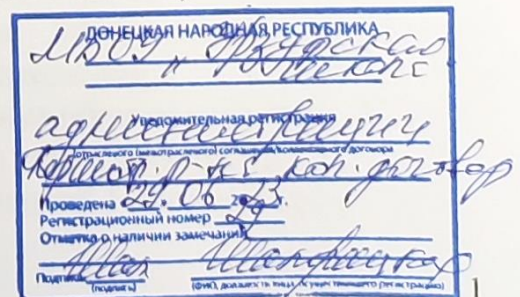 ДОНЕЦКАЯ НАРОДНАЯ РЕСПУБЛИКА
МБОУ "
школа
Уведомительная регистрация
администрации
отраслевого (межотраслевого) соглашения/коллективного договора
р-на кол. договор
Проведена «29» 06 2023 г.
Регистрационный номер 29
Отметка о наличии замечаний
Подпись
(подпись) (ФИО, должность лица, осуществляющего регистрацию)